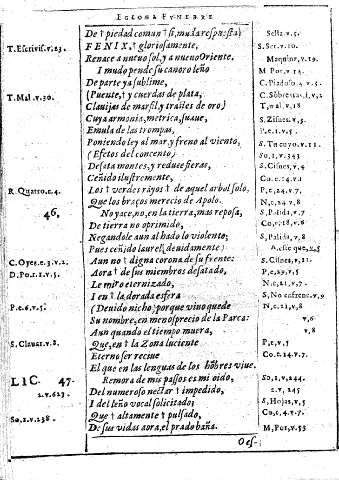 EGLOGA FVNEBRE
De † piedad comun † si, muda respuesta)
Sel2.v.5.
T. Escrivis. v.23.
FENIX, † gloriosamente,
S. Ser.v.10.
Renace a nuevo sol, y a nuevo Oriente.
Maquinz, v.19.
I mudo pende su canoro leño
M Por, v.14.
De parte ya sublime,
C. Piadoso.4.v.5.
T. Mal. v.30.
(Puente, † y cuerdas de plata,
Clavijas de marfil, y trastes de oro)
T, nal, v.18
Cuya armonia, metrica, suave,
S. Zisnes, v.5.
Emula de las trompas,
P, c.1.v.5.
Poniendo ley al mar, y freno al viento,
S. Tu cuyo.v.11.
(Efetos del concento)
So, 1, v.343
Desata montes, y reduce fieras,
S. Cisnes, v.4
Ceñido ilustremente,
Co, c.14.v.1
R. Quatro.c.4.
Los † verdes rayos † de aquel arbol solo,
P, c, 24.v.7,
46,
Que los braços merecio de Apolo.
N, c, 24 v, 8
No yace, no, en la tierra, mas reposa,
S, Palida, v.7
De tierra no oprimido,
Co, c, 18, v, 6
Negandole aun al hado lo violento;
S, Palida, v, 8
Pues ceñido laurel (devidamente)
C. Oyes. c.3.v.2,
Aun no † digna corona de su frente:
S. Cisnes, v, 11.
D. Por. 1.v.5.
Aora † de sus miembros desatado,
P, c, 29, v, 5
Le miro eternizado,
N.c, 21, v, 7.
I en † la dorada esfera
P. c.6, v.5.
(Devido nicho) porque vivo quede
N, c, 21, v, 8
Su nombre, en menosprecio de la Parca:
v,6
Aun quando el tiempo muera,
v, 8
S. Clavar. v.8.
Que, en † la Zona luciente
P, c, v, 5
Eterno ser recive
Co. c.14.v.7.
El que en las lenguas de los hõbres vive.
LIC. 47.
Remora de mis passos es mi oido,
So, 1, v, 244.
2.v.623.
Del numeroso nectar † impedido,
2.v, 245
I del leño vocal solicitado;
S, Hojas, v, 5
So, 2, v.238.
Que † altamente † pulsado,
Co, c, 4.v.7.
De sus vidas aora, el prado baña.
M, Por, v.53
Oes-